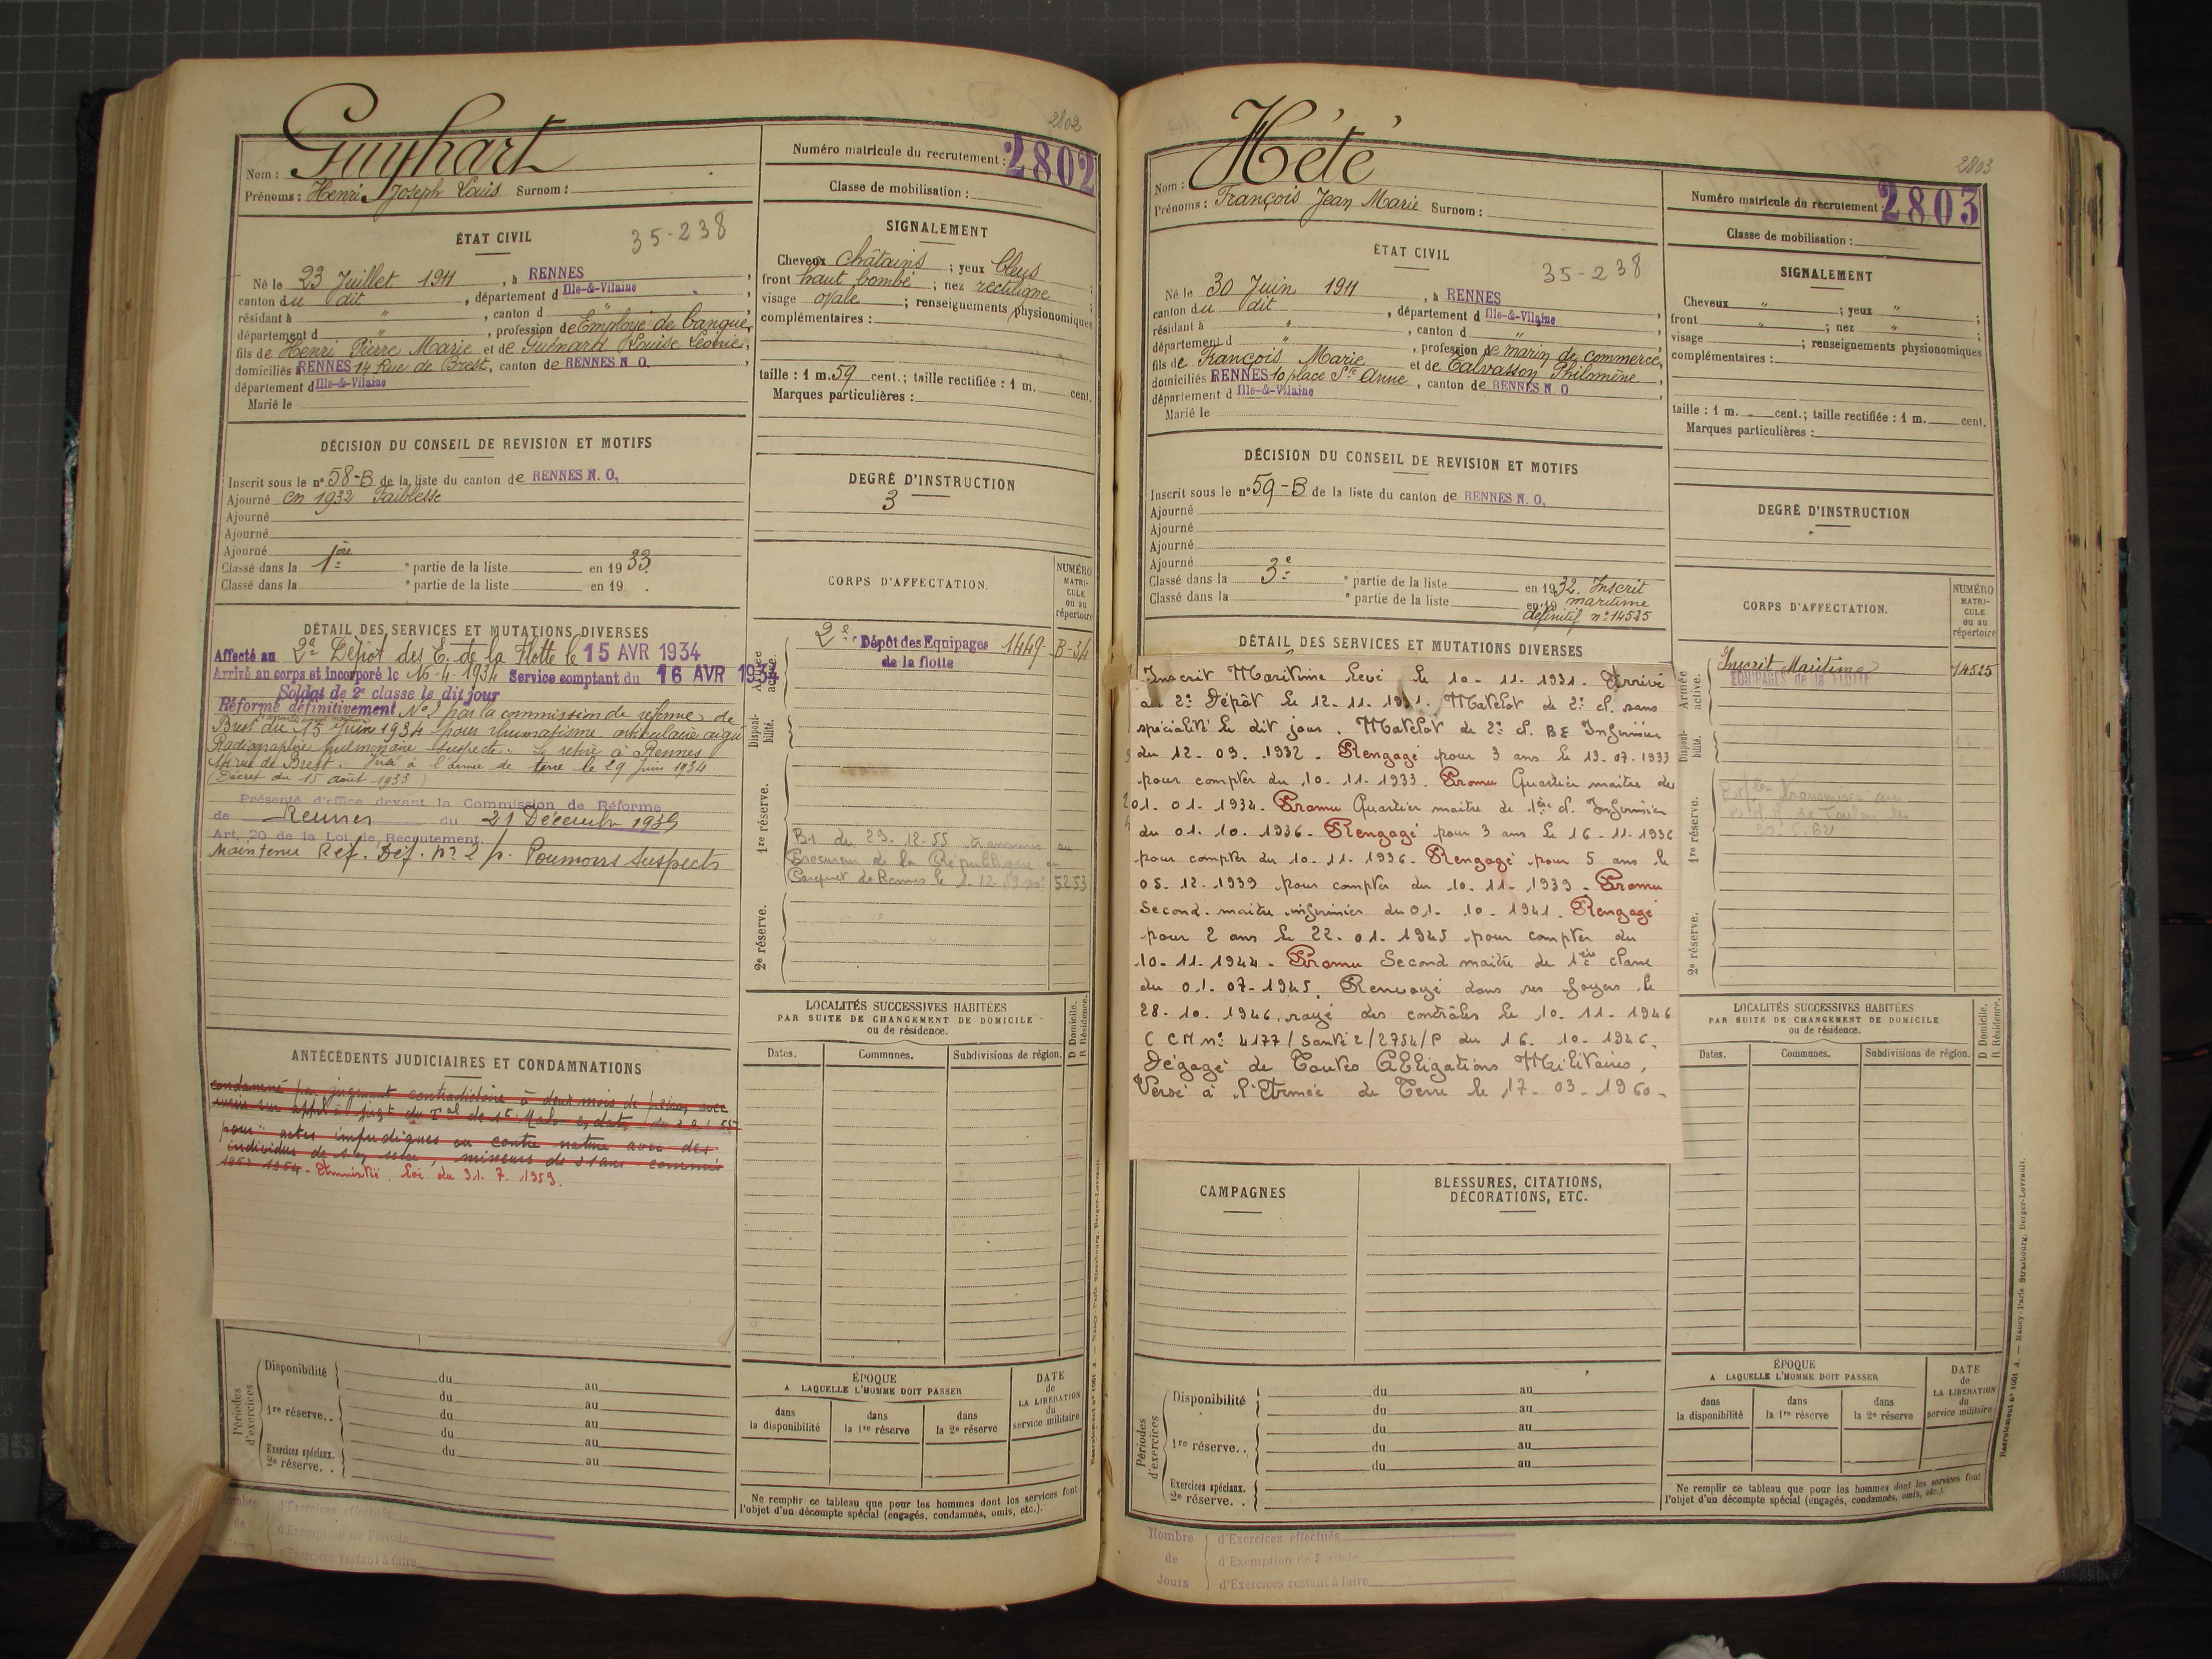 2802
Guyhart
Nom :
Prénoms : Henri Joseph Louis Surnom :
Numéro matricule du recrutement : 2802
Classe de mobilisation :
ÉTAT CIVIL
35-238
Né le 23 Juillet 1911, à RENNES,
canton du dit, département d Ille-&-Vilaine
résidant à ", canton d ",
département d ", profession de Employé de banque,
fils de Henri Pierre Marie et de Guénard Louise Léonie,
domiciliés à RENNES 14 Rue de Brest, canton de RENNES N. O.,
département d Ille-&-Vilaine
Marié le
SIGNALEMENT
Cheveux châtains ; yeux bleus
front haut bombé ; nez rectiligne ;
visage ovale ; renseignements physionomiques
complémentaires :
taille : 1 m. 59 cent. ; taille rectifiée : 1 m. cent.
Marques particulières :
DÉCISION DU CONSEIL DE REVISION ET MOTIFS
Inscrit sous le n° 58-B de la liste du canton de RENNES N. O.
Ajourné en 1932 Faiblesse
Ajourné
Ajourné
Ajourné
Classé dans la 1ère partie de la liste en 1933.
Classé dans la partie de la liste en 19 .
DEGRÉ D'INSTRUCTION
3
DÉTAIL DES SERVICES ET MUTATIONS DIVERSES
Affecté au 2e Dépôt des E. de la Flotte le 15 AVR 1934
Arrivé au corps et incorporé le 16-4-1934 Service comptant du 16 AVR 1934
Soldat de 2e classe le dit jour
Réformé définitivement N° 2 par la commission de réforme de
Brest du 15 Juin 1934 pour rhumatisme articulaire aigu
Radiographie pulmonaire suspecte. Se retire à Rennes
14 rue de Brest. Versé à l'armée de terre le 29 Juin 1934
(Décret du 15 août 1933)
Présenté d'office devant la Commission de Réforme
de Rennes du 21 Décembre 1939
Art. 20 de la Loi de Recrutement.
Maintenu Réf. Déf. n° 2 p. Poumons suspects
CORPS D'AFFECTATION.
NUMÉRO MATRICULE ou au répertoire
Armée active.
2e Dépôt des Equipages 1449- B-34
de la flotte
Disponibilité.
1re réserve.
B1 du 29-12-55 transmis au
Procureur de la République au
Parquet de Rennes le 5253
2e réserve.
ANTÉCÉDENTS JUDICIAIRES ET CONDAMNATIONS
condamné par jugement contradictoire à deux mois de prison avec
sursis sur appel jugt du Tal de St Malo en date du
pour actes impudiques ou contre nature avec des
individus de son sexe, mineurs de 21 ans commis
1953 1954 - Amnistié. Loi du 31. 7. 1959.
LOCALITÉS SUCCESSIVES HABITÉES
PAR SUITE DE CHANGEMENT DE DOMICILE
ou de résidence.
D Domicile. R Résidence.
Dates. Communes. Subdivisions de région.
Périodes d'exercices.
Disponibilité du au
du au
1re réserve. . du au
du au
Exercices spéciaux. du au
2e réserve. .
ÉPOQUE
A LAQUELLE L'HOMME DOIT PASSER
dans la disponibilité
dans la 1re réserve
dans la 2e réserve
DATE de LA LIBÉRATION du service militaire
Ne remplir ce tableau que pour les hommes dont les services font
l'objet d'un décompte spécial (engagés, condamnés, omis, etc.).
Nombre de Jours
d'Exercices effectués
d'Exemption de Période
d'Exercices restant à faire
2803
Hété
Nom :
Prénoms : François Jean Marie Surnom :
Numéro matricule du recrutement : 2803
Classe de mobilisation :
ÉTAT CIVIL
35-238
Né le 30 Juin 1911, à RENNES
canton du dit, département d Ille-&-Vilaine
résidant à ", canton d ",
département d ", profession de marin de commerce,
fils de François Marie et de Talvasson Philomène,
domiciliés RENNES 10 place Ste Anne, canton de RENNES N. O.
département d Ille-&-Vilaine
Marié le
SIGNALEMENT
Cheveux " ; yeux " ;
front " ; nez " ;
visage ; renseignements physionomiques
complémentaires :
taille : 1 m. cent. ; taille rectifiée : 1 m. cent.
Marques particulières :
DÉCISION DU CONSEIL DE REVISION ET MOTIFS
Inscrit sous le n° 59-B de la liste du canton de RENNES N. O.
Ajourné
Ajourné
Ajourné
Ajourné
Classé dans la 3e partie de la liste en 1932. Inscrit
Classé dans la partie de la liste en 19 maritime
définitif n° 14525
DEGRÉ D'INSTRUCTION
DÉTAIL DES SERVICES ET MUTATIONS DIVERSES
Inscrit Maritime Levé le 10-11-1931. Arrivé
au 2e Dépôt le 12.11.1931. Matelot de 2e cl. sans
spécialité le dit jour. Matelot de 2e cl. BE Infirmier
du 12-09-1932 - Rengagé pour 3 ans le 13-07-1933
pour compter du 10-11-1933. Promu Quartier maître du
01-01-1934. Promu Quartier maître de 1ère cl. Infirmier
du 01.10.1936 - Rengagé pour 3 ans le 16-11-1936
pour compter du 10-11-1936. Rengagé pour 5 ans le
05.12.1939 pour compter du 10-11-1939 - Promu
Second-maître infirmier du 01-10-1941. Rengagé
pour 2 ans le 22-01-1945 pour compter du
10-11-1944 - Promu Second maître de 1ère classe
du 01-07-1945. Renvoyé dans ses foyers le
28-10-1946, rayé des contrôles le 10-11-1946
( CM n° 4177/Santé 2/2754/P du 16-10-1946.
Dégagé de Toutes Obligations Militaires,
Versé à l'Armée de Terre le 17-03-1960-
CORPS D'AFFECTATION.
NUMÉRO MATRICULE ou au répertoire
Armée active.
Inscrit Maritime 14525
EQUIPAGES de la FLOTTE
Disponibilité.
1re réserve.
2e réserve.
CAMPAGNES
BLESSURES, CITATIONS,
DÉCORATIONS, ETC.
LOCALITÉS SUCCESSIVES HABITÉES
PAR SUITE DE CHANGEMENT DE DOMICILE
ou de résidence.
D Domicile. R Résidence.
Dates. Communes. Subdivisions de région.
Périodes d'exercices
Disponibilité du au
du au
1re réserve. . du au
du au
Exercices spéciaux. du au
2e réserve. .
ÉPOQUE
A LAQUELLE L'HOMME DOIT PASSER
dans la disponibilité
dans la 1re réserve
dans la 2e réserve
DATE de LA LIBÉRATION du service militaire
Ne remplir ce tableau que pour les hommes dont les services font
l'objet d'un décompte spécial (engagés, condamnés, omis, etc.).
Nombre de Jours
d'Exercices effectués
d'Exemption de Période
d'Exercices restant à faire
Recrutement n° 1061 A. — Nancy-Paris Strasbourg, Berger-Levrault.